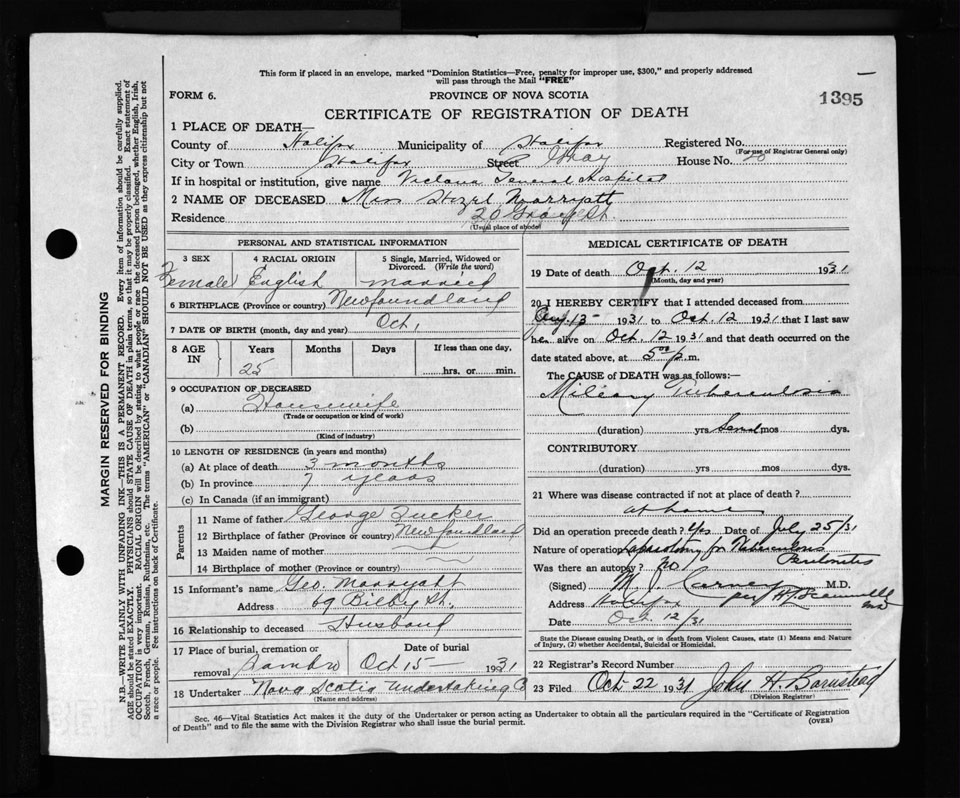 This form if placed in an envelope, marked "Dominion Statistics—Free, penalty for improper use, $300," and properly addressed
will pass through the Mail "FREE"
FORM 6. PROVINCE OF NOVA SCOTIA
1395
CERTIFICATE OF REGISTRATION OF DEATH
1 PLACE OF DEATH—
County of Halifax Municipality of Halifax Registered No.
(For use of Registrar General only)
City or Town Halifax Street House No. 20
If in hospital or institution, give name Victoria General Hospital
2 NAME OF DECEASED Hazel Marryatt
Residence 20 St.
(Usual place of abode)
PERSONAL AND STATISTICAL INFORMATION
3 SEX 4 RACIAL ORIGIN 5 Single, Married, Widowed or
Divorced. (Write the word)
Female English married
6 BIRTHPLACE (Province or country) Newfoundland
7 DATE OF BIRTH (month, day and year) Oct,
8 AGE IN Years Months Days If less than one day,
25 hrs. or min.
9 OCCUPATION OF DECEASED
(a) Housewife
(Trade or occupation or kind of work)
(b)
(Kind of industry)
10 LENGTH OF RESIDENCE (in years and months)
(a) At place of death 3 months
(b) In province 7 years
(c) In Canada (if an immigrant)
Parents
11 Name of father George Tucker
12 Birthplace of father (Province or country) Newfoundland
13 Maiden name of mother
14 Birthplace of mother (Province or country)
15 Informant's name Geo. Marryatt
Address 69 Bilby St.
16 Relationship to deceased Husband
17 Place of burial, cremation or removal Sambro Date of burial Oct 15 1931
18 Undertaker Nova Scotia Undertaking Co
(Name and address)
MEDICAL CERTIFICATE OF DEATH
19 Date of death Oct. 12 1931
(Month, day and year)
20 I HEREBY CERTIFY that I attended deceased from
Aug. 13 1931 to Oct. 12 1931 that I last saw
her alive on Oct. 12 1931 and that death occurred on
date stated above, at 5 00 p.m.
The CAUSE of DEATH was as follows:—
Miliary Tuberculosis
(duration) yrs mos dys.
CONTRIBUTORY
(duration) yrs. mos. dys.
21 Where was disease contracted if not at place of death?
at home
Did an operation precede death? Yes Date of July 25/31
Nature of operation Laparotomy for Tuberculous Peritonitis
Was there an autopsy? no
(Signed) M. J. Carney M.D.
Address Halifax per H.
Date Oct 12/31
State the Disease causing Death, or in death from Violent Causes, state (1) Means and Nature
of Injury, (2) whether Accidental, Suicidal or Homicidal.
22 Registrar's Record Number
23 Filed Oct 22 1931 John H. Barnstead
(Division Registrar)
Sec. 46—Vital Statistics Act makes it the duty of the Undertaker or person acting as Undertaker to obtain all the particulars required in the "Certificate of Registration
of Death" and to file the same with the Division Registrar who shall issue the burial permit. (OVER)
MARGIN RESERVED FOR BINDING
N.B.—WRITE PLAINLY WITH UNFADING INK—THIS IS A PERMANENT RECORD. Every item of information should be carefully supplied.
AGE should be stated EXACTLY. PHYSICIANS should STATE CAUSE OF DEATH in plain terms, so that it may be properly classified. Exact statement of
OCCUPATION is very important. RACIAL ORIGIN will be described by stating to what people or race the deceased person belonged, whether English, Irish,
Scotch, French, German, Russian, Ruthenian, etc. The terms "AMERICAN" or "CANADIAN" SHOULD NOT BE USED as they express citizenship but not
a race or people. See instructions on back of Certificate.